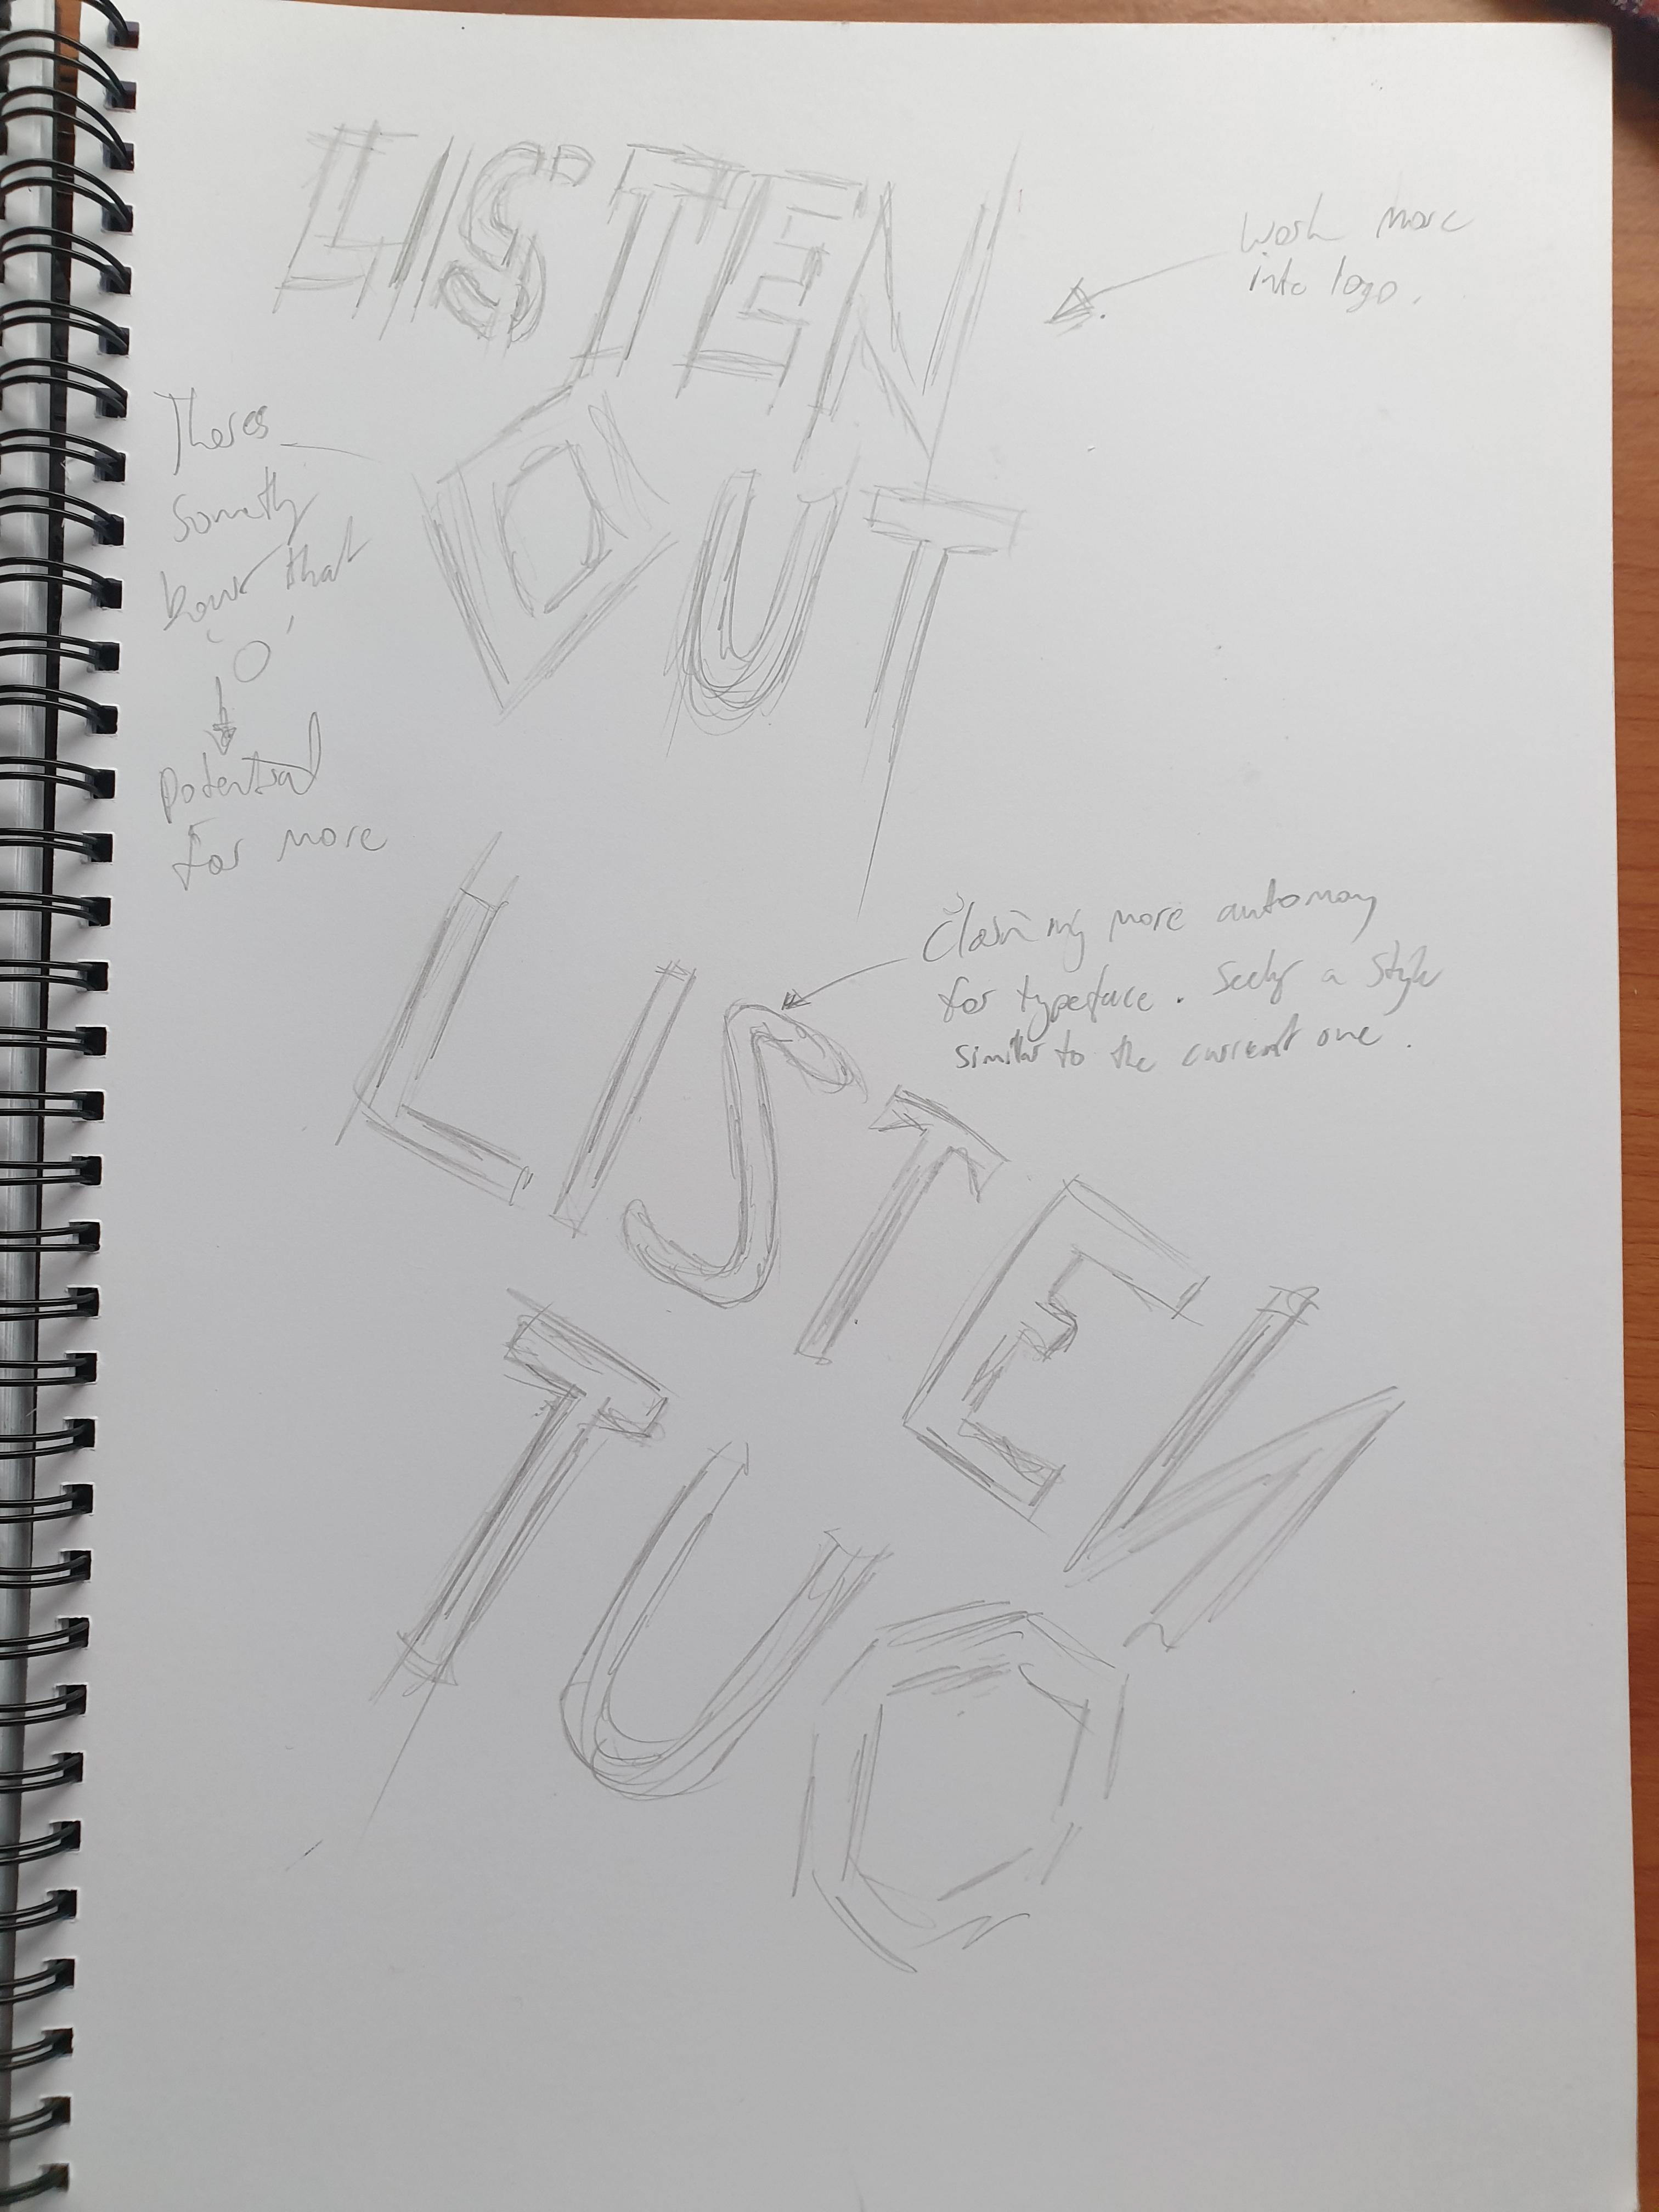 LISTEN
OUT
Work more
into logo.
Theres
Somethg
bout that
'O'
Potential
for more
Claiming more automay
for typeface. Seekg a Style
similar to the current one.
LISTEN
TUO